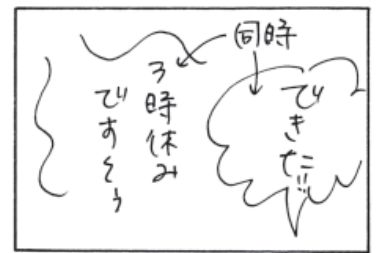 同時
できた!!
3時休み
ですそう